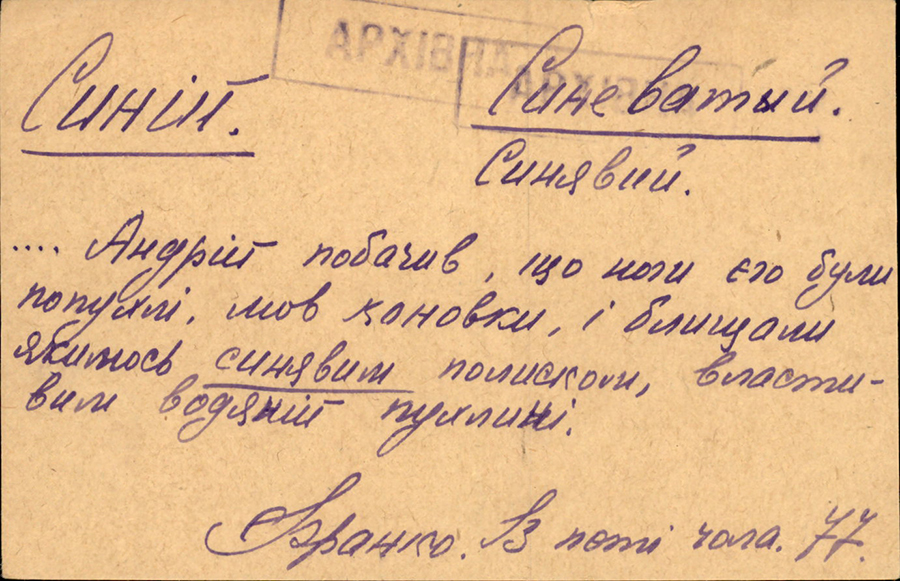 АРХІВ
Синій.
Синеватый.
Синявий.
.... Андрій побачив, що ноги єго були
попухлі, мов коновки, і блищали
якимось синявим полиском, власти-
вим водяній пухлині.
Франко. В поті чола. 77.